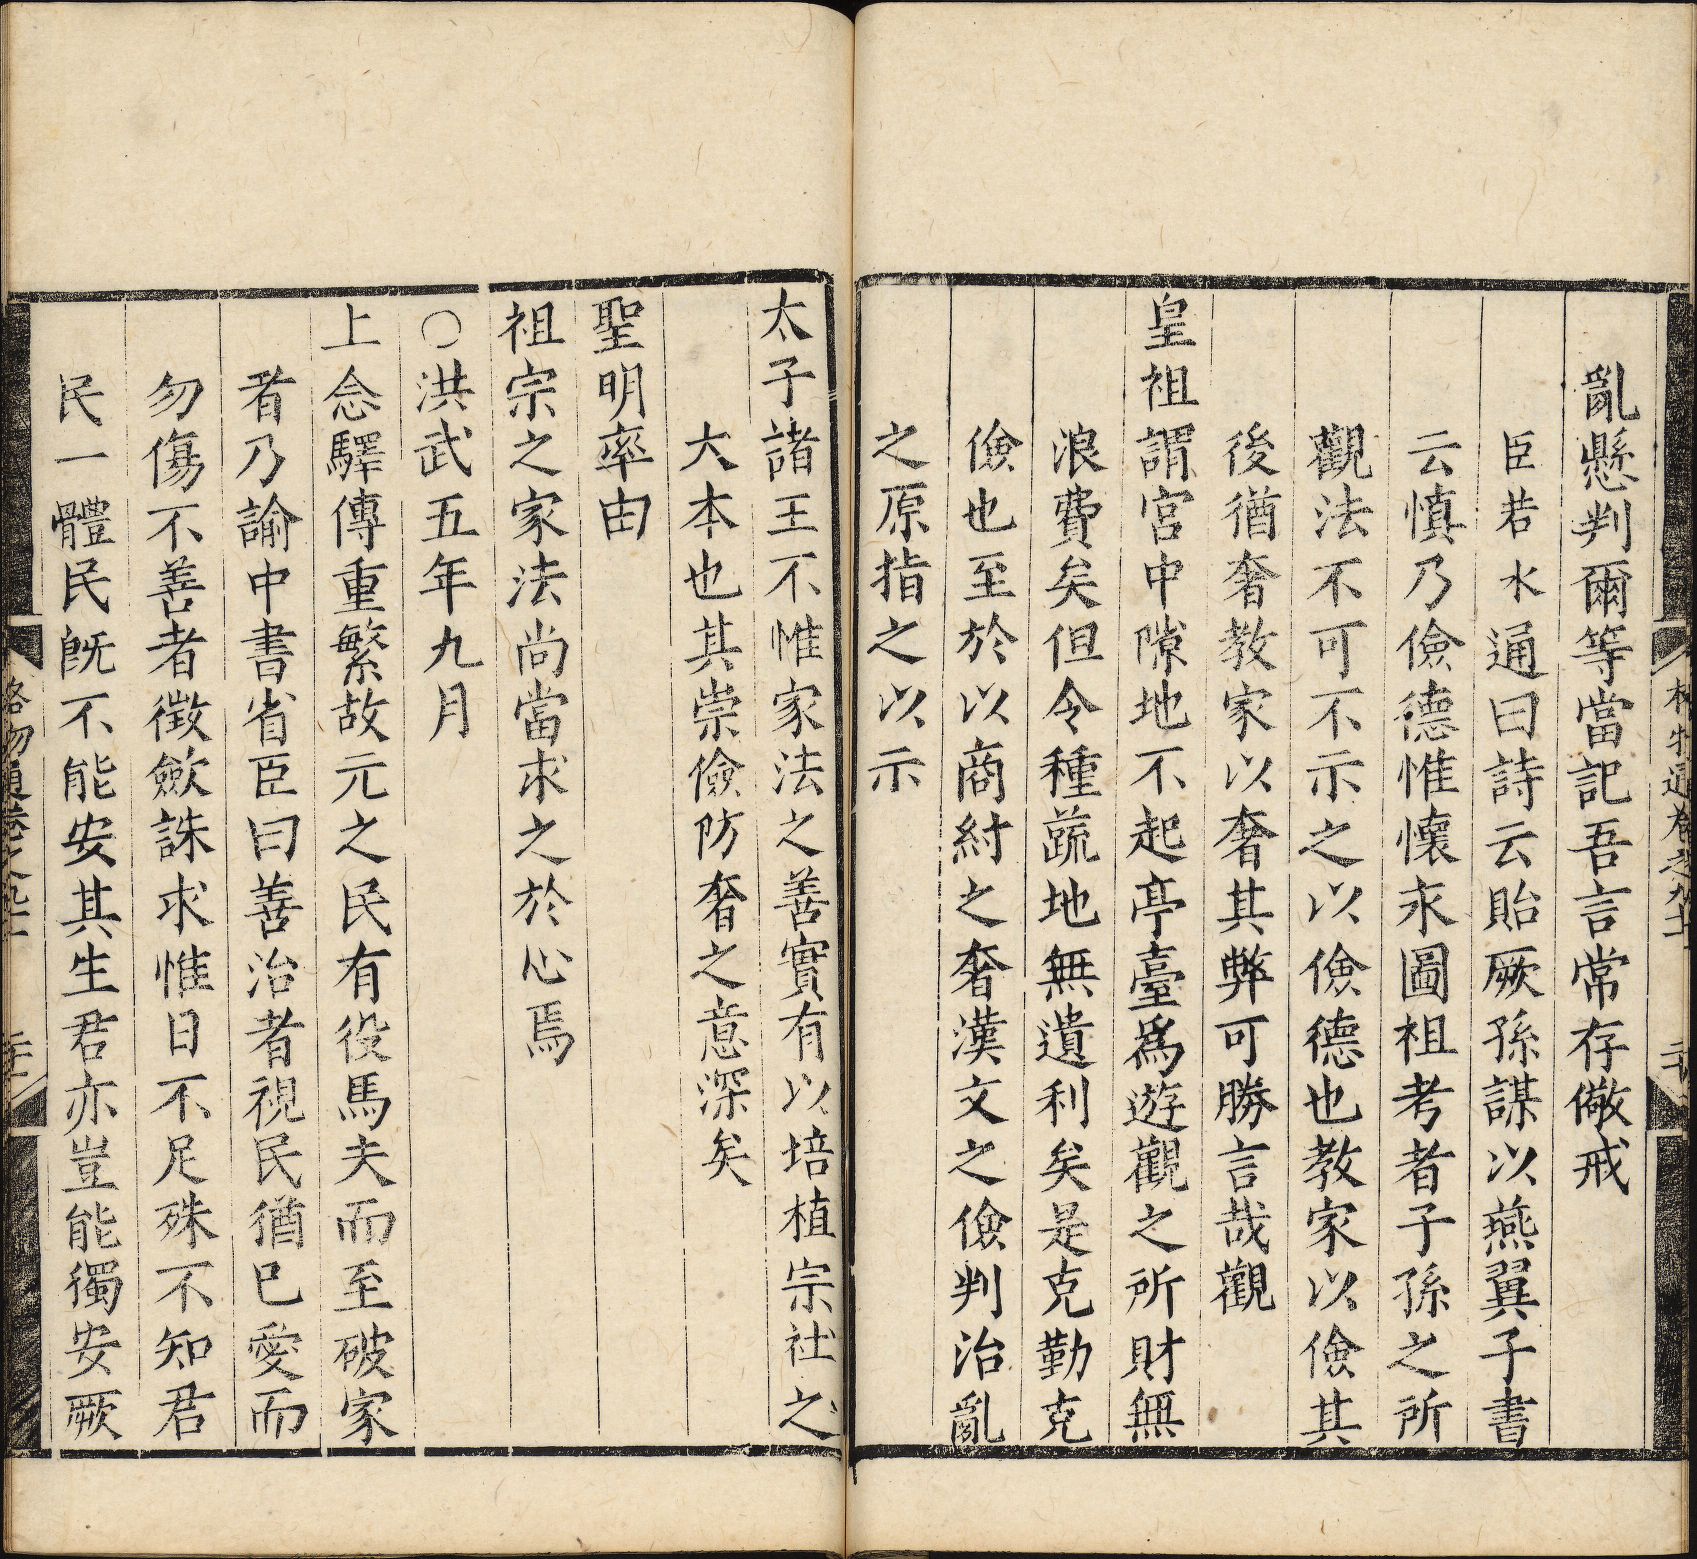 亂懸判爾等當記吾言常存儆戒
臣若水通曰詩云貽厥孫謀以燕翼子書
云慎乃儉德惟懷永圖祖考者子孫之所
觀法不可不示之以儉德也教家以儉其
後猶奢教家以奢其弊可勝言哉觀
皇祖謂宮中隙地不起亭臺爲遊觀之所財無
浪費矣但令種蔬地無遺利矣是克勤克
儉也至於以商紂之奢漢文之儉判治亂
之原指之以示
太子諸王不惟家法之善實有以培植宗社之
大本也其崇儉防奢之意深矣
聖明率由
祖宗之家法尚當求之於心焉
○洪武五年九月
上念驛傳重繁故元之民有役馬夫而至破家
者乃諭中書省臣曰善治者視民猶已愛而
勿傷不善者徵歛誅求惟日不足殊不知君
民一體民旣不能安其生君亦豈能獨安厥